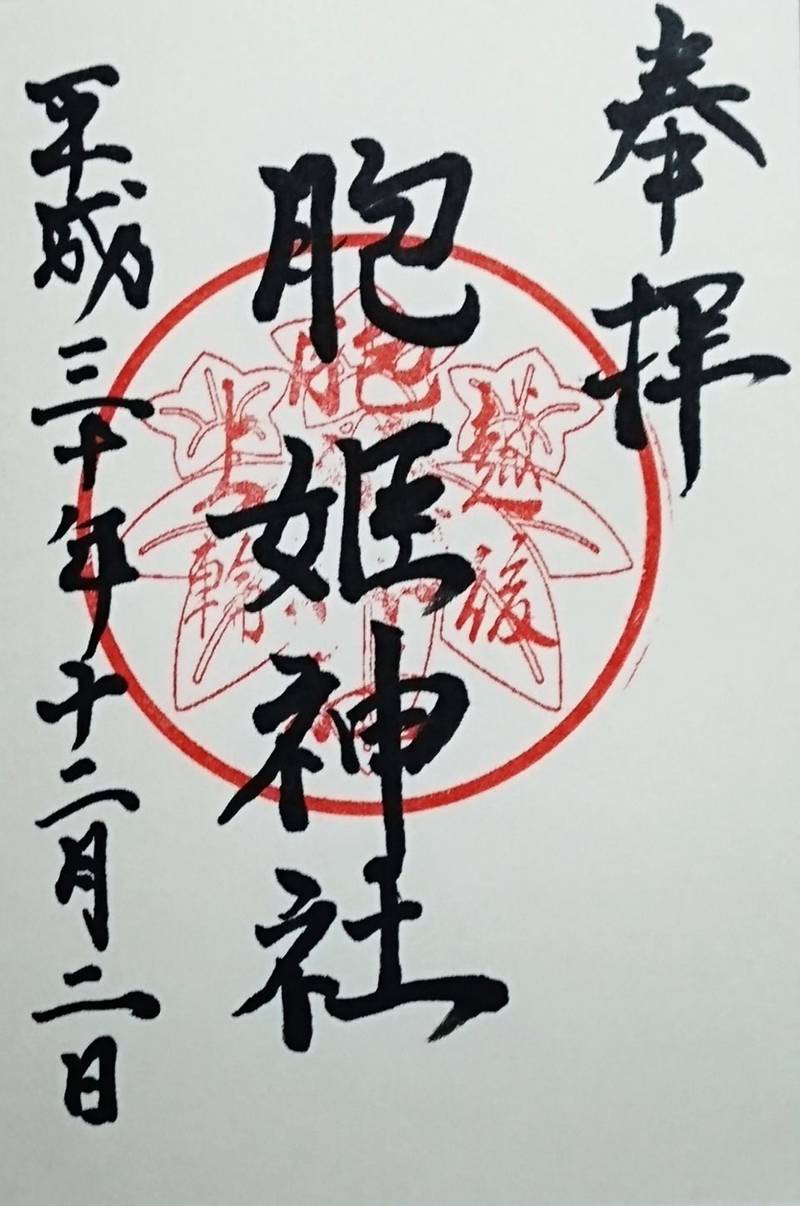 奉拝
越後
胞姫神社
上輪
平成三十年十二月二日